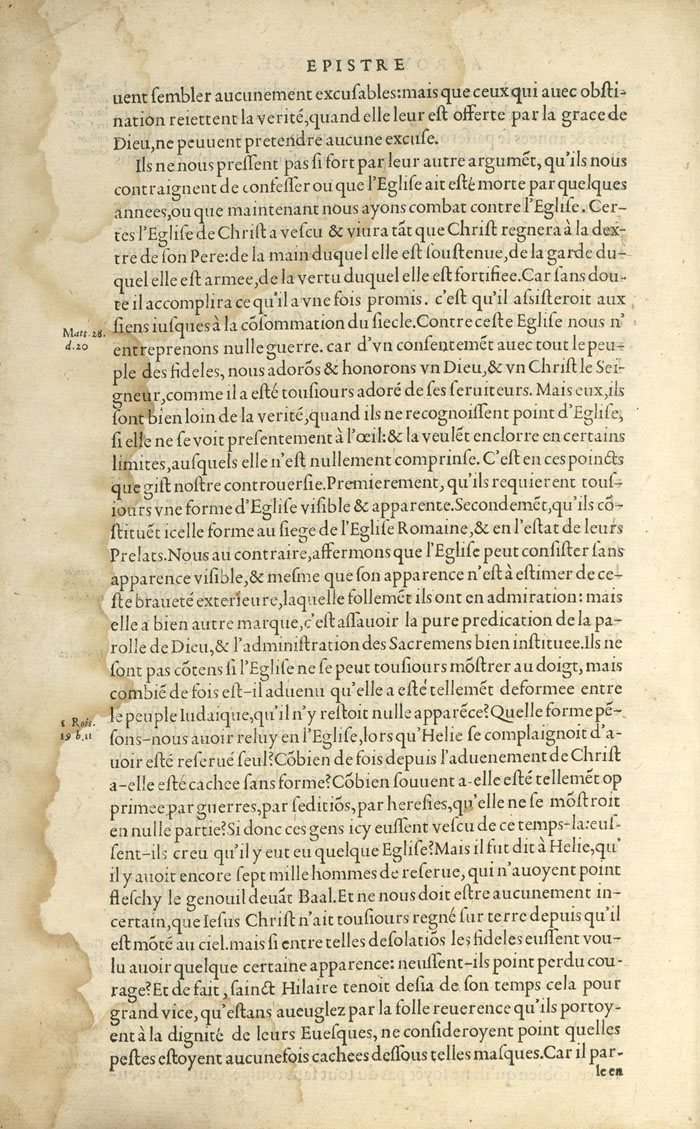 EPISTRE
uent ſembler aucunement excuſables:mais que ceux qui auec obſti-
nation reiettent la verité,quand elle leur eſt offerte par la grace de
Dieu,ne peuuent pretendre aucune excuſe.
Ils ne nous preſſent pas ſi fort par leur autre argumēt, qu'ils nous
contraignent de confeſſer ou que l'Egliſe ait eſté morte par quelques
annees,ou que maintenant nous ayons combat contre l'Egliſe. Cer-
tes l'Egliſe de Chriſt a veſcu & viura tāt que Chriſt regnera à la dex-
tre de ſon Pere:de la main duquel elle eſt ſouſtenue,de la garde du-
quel elle eſt armee,de la vertu duquel elle eſt fortifiee.Car ſans dou-
te il accomplira ce qu'il a vne fois promis. c'eſt qu'il aſsiſteroit aux
ſiens iuſques à la cōſommation du ſiecle.Contre ceſte Egliſe nous n'
Matt.28.
d.20
entreprenons nulle guerre. car d'vn conſentemēt auec tout le peu-
ple des fideles, nous adorōs & honorons vn Dieu,& vn Chriſt le Sei-
gneur,comme il a eſté touſiours adoré de ſes ſeruiteurs. Mais eux,ils
ſont bien loin de la verité,quand ils ne recognoiſſent point d'Egliſe,
ſi elle ne ſe voit preſentement à l'œil:& la veulēt enclorre en certains
limites,auſquels elle n'eſt nullement comprinſe. C'eſt en ces poincts
que giſt noſtre controuerſie.Premierement, qu'ils requierent touſ-
iours vne forme d'Egliſe viſible & apparente.Secondemēt,qu'ils cō-
ſtituēt icelle forme au ſiege de l'Egliſe Romaine,& en l'eſtat de leurs
Prelats.Nous au contraire,affermons que l'Egliſe peut conſiſter ſans
apparence viſible,& meſme que ſon apparence n'eſt à eſtimer de ce-
ſte braueté exterieure,laquelle follemēt ils ont en admiration: mais
elle a bien autre marque,c'eſt aſſauoir la pure predication de la pa-
rolle de Dieu,& l'adminiſtration des Sacremens bien inſtituee.Ils ne
ſont pas cōtens ſi l'Egliſe ne ſe peut touſiours mōſtrer au doigt, mais
combiē de fois eſt-il aduenu qu'elle a eſté tellemēt deformee entre
le peuple Iudaique,qu'il n'y reſtoit nulle apparēce?Quelle forme pē-
1 Rois.
19 b.11
ſons-nous auoir reluy en l'Egliſe,lors qu'Helie ſe complaignoit d'a-
uoir eſté reſerué ſeul?Cōbien de fois depuis l'aduenement de Chriſt
a-elle eſté cachee ſans forme?Cōbien ſouuent a-elle eſté tellemēt op
primee par guerres,par ſeditiōs,par hereſies,qu'elle ne ſe mōſtroit
en nulle partie?Si donc ces gens icy euſſent veſcu de ce temps-la:euſ-
ſent-ils creu qu'il y eut eu quelque Egliſe?Mais il fut dit à Helie,qu'
il y auoit encore ſept mille hommes de reſerue, qui n'auoyent point
fleſchy le genouil deuāt Baal.Et ne nous doit eſtre aucunement in-
certain,que Ieſus Chriſt n'ait touſiours regné ſur terre depuis qu'il
eſt mōté au ciel.mais ſi entre telles deſolatiōs les fideles euſſent vou-
lu auoir quelque certaine apparence: neuſſent-ils point perdu cou-
rage?Et de fait, ſainct Hilaire tenoit deſia de ſon temps cela pour
grand vice, qu'eſtans aueuglez par la folle reuerence qu'ils portoy-
ent à la dignité de leurs Eueſques, ne conſideroyent point quelles
peſtes eſtoyent aucunefois cachees deſſous telles maſques.Car il par-
le en